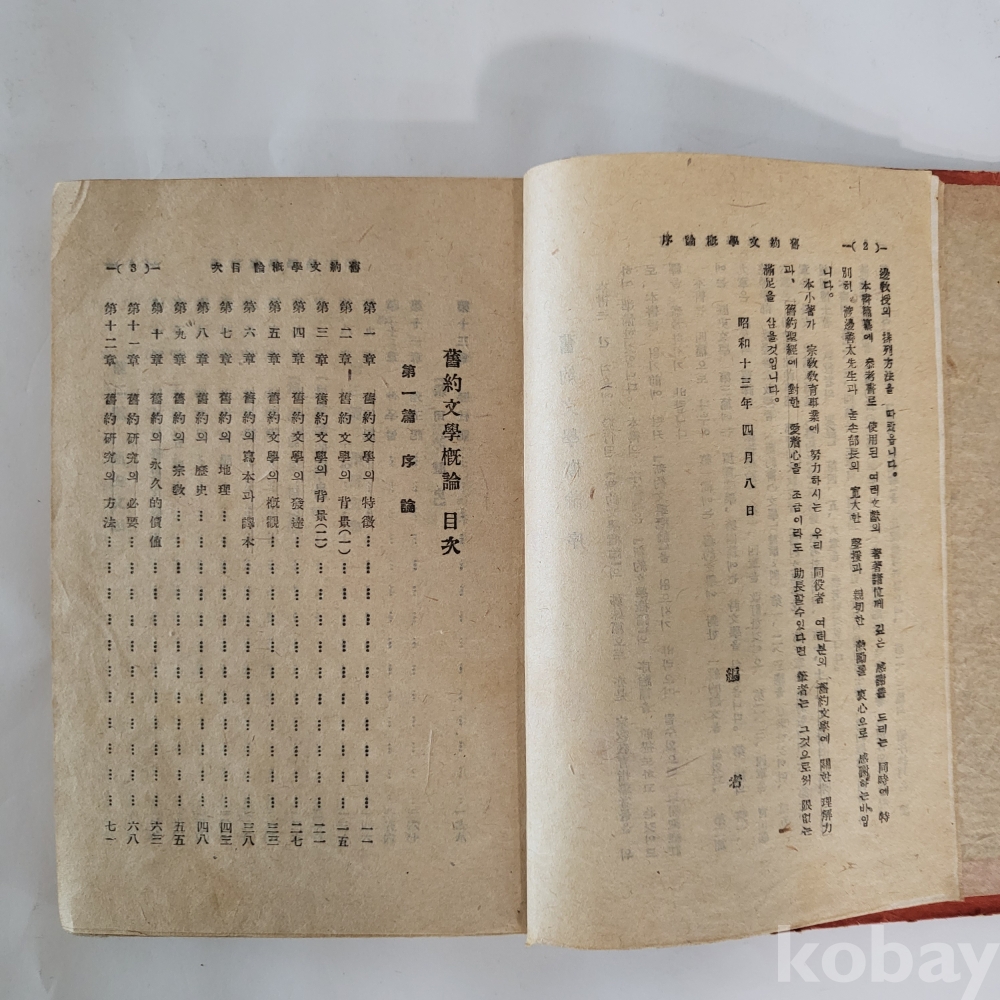 舊約文學槪論序 ―(2)―
邊敎授의 排列方法을 따랐읍니다。
本書編纂에 參考書로 使用된 여러文獻의 著者諸位께 깊은 感謝를 드리는 同時에 特
別히 渡邊善太先生과 눌손部長의 寬大한 援과 親切한 를 衷心으로 感謝하는바임
니다。
本小著가 宗敎敎育事業에 努力하시는 우리 同役者 여러분의 舊約文學에 關한 理解力
과、舊約聖經에 對한 愛着心을 조금이라도 助長할수있다면 筆者는 그것으로의 限없는
滿足을 삼을것입니다。
昭和十三年四月八日
編者
舊約文學槪論目次 ―(3)―
舊約文學槪論 目次
第一篇 序論
第一章 舊約文學의 特徵……一一
第二章 舊約文學의 背景(一)……一五
第三章 舊約文學의 背景(二)……二一
第四章 舊約文學의 發達……二七
第五章 舊約文學의 槪觀……三三
第六章 舊約의 寫本과 譯本……三八
第七章 舊約의 地理……四三
第八章 舊約의 歷史……四八
第九章 舊約의 宗敎……五五
第十章 舊約의 永久的價値……六三
第十一章 舊約硏究의 必要……六八
第十二章 舊約硏究의 方法……七一
kobay